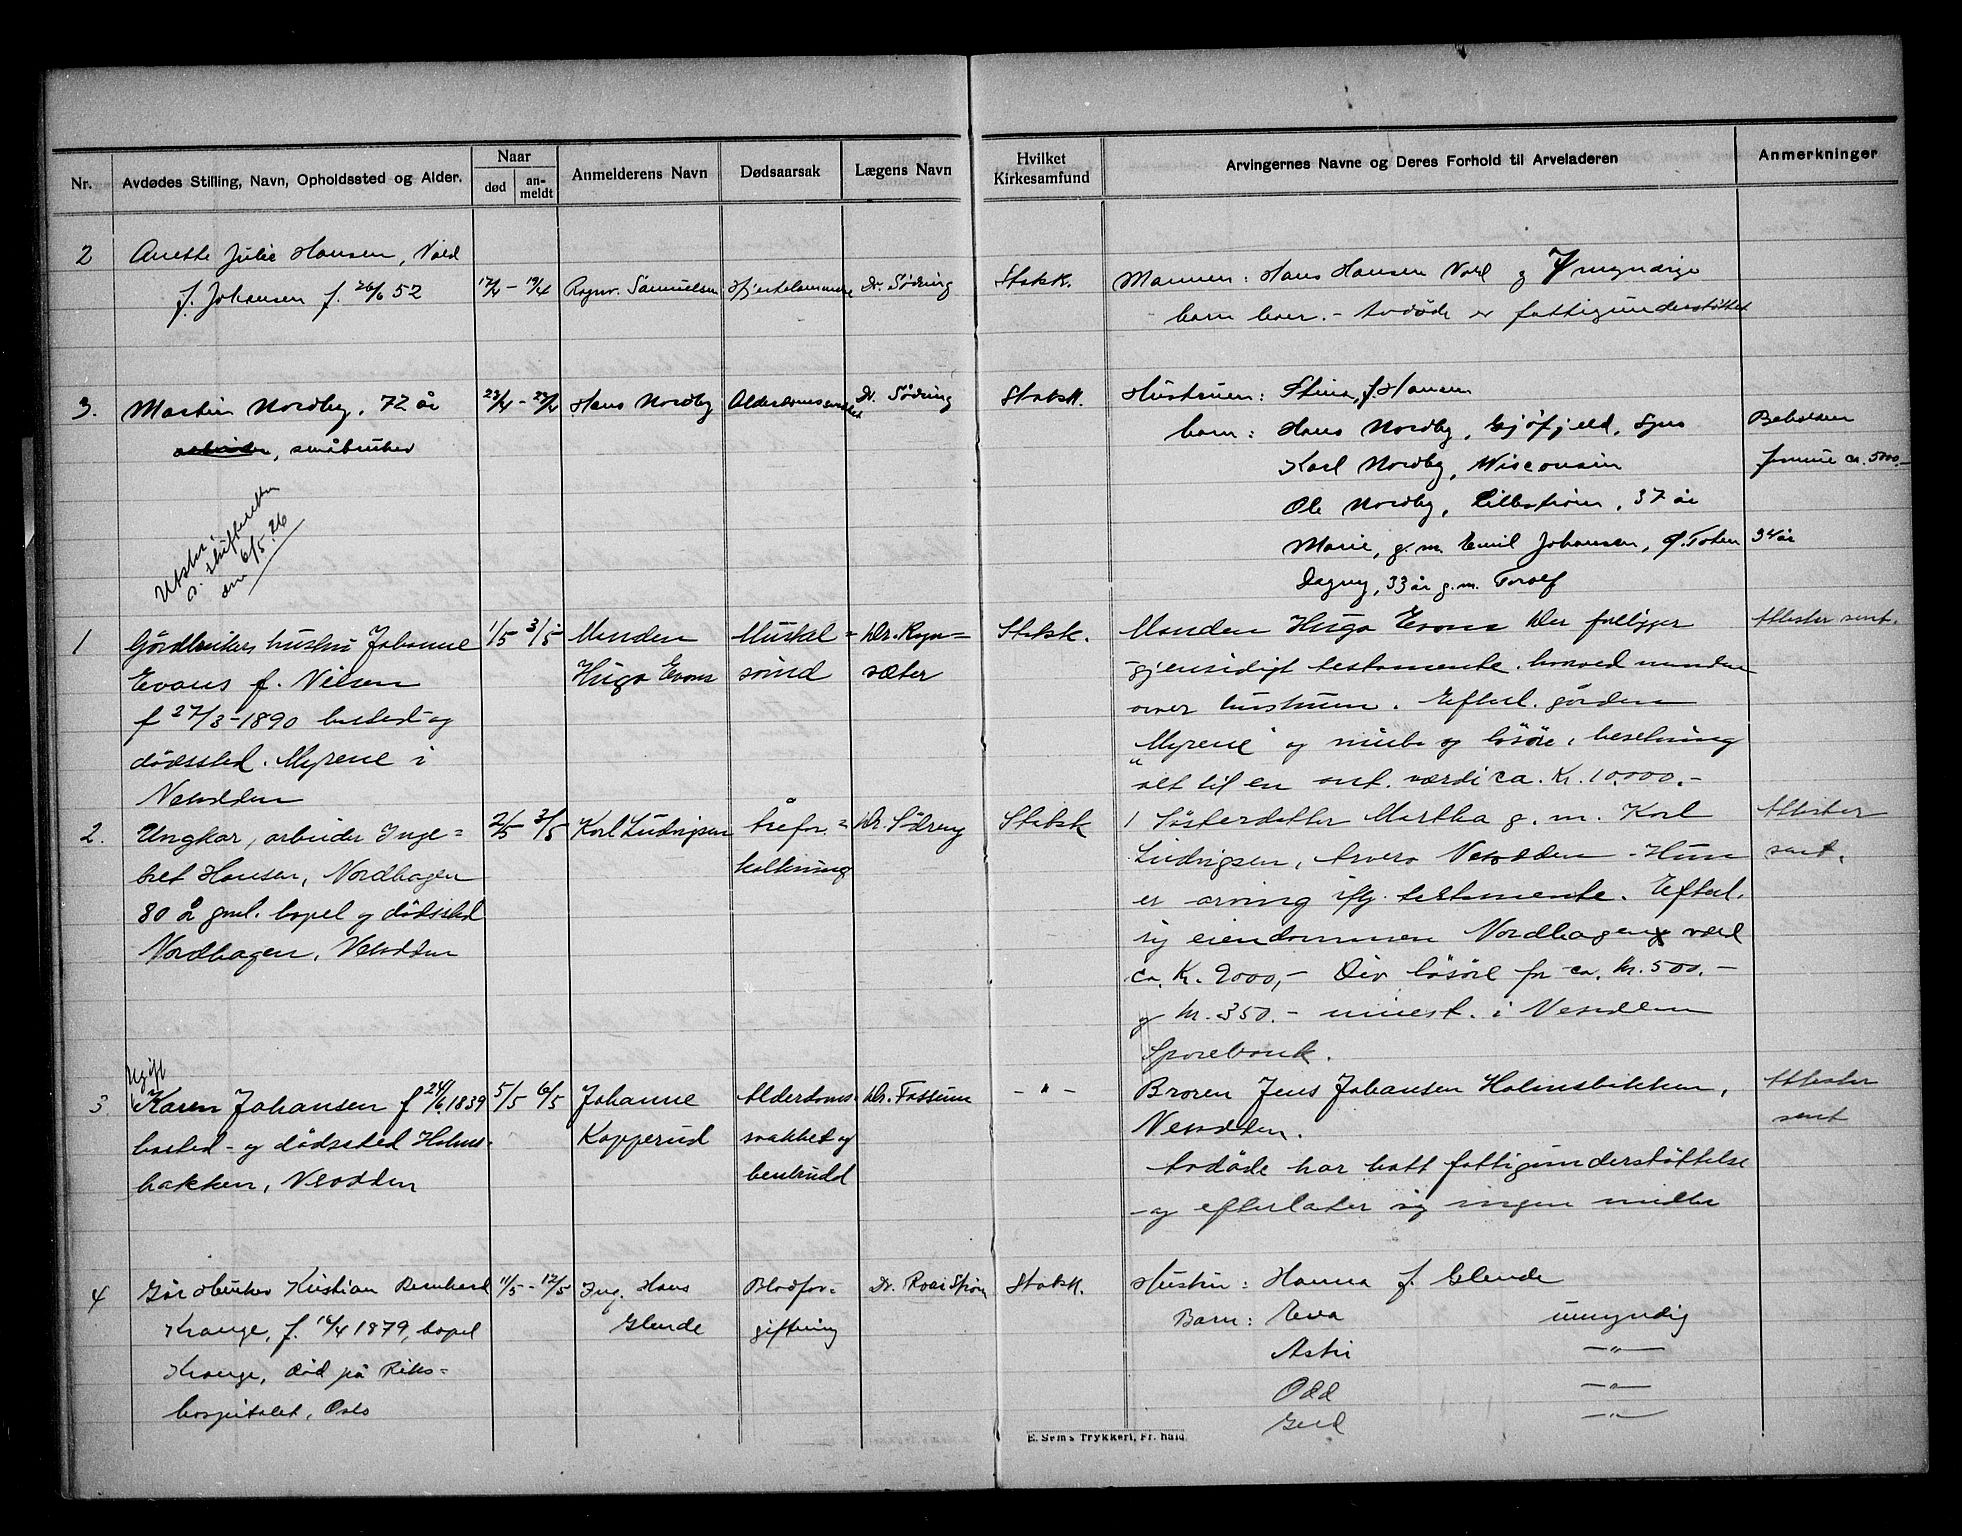 Nr.
Avdødes Stilling, Navn, Opholdssted og Alder.
Naar
død
an-
meldt
Anmelderens Navn
Dødsaarsak
Lægens Navn
Hvilket
Kirkesamfund
Arvingernes Navne og Deres Forhold til Arveladeren
Anmerkninger
2
Anette Julie Hansen,
f. Johansen f. 26/6 52
17/4 - 19/4
Ragnv. Samuelsen
Hjertelammelse
Dr. Södring
Statsk.
Mannen: Hans Hansen og 7 myndige
barn - Avdøde er fattigunderstøttet
3.
Martin Nordby, 72 år
arbeider, småbruker
Hans Nordby
Alderdomssvakhet
Dr. Södring
Statsk.
Hustruen: Stina, f. Hansen
barn: Hans Nordby,
Karl Nordby, Wisconsin
Ole Nordby, Lillestrøm, 37 år
Marie, g.m. Emil Johansen, Ø. Toten 34 år
Dagny, 33 år g.m. Torolf
Beholden
formue ca. 5000.-
Utskr.
s. skifteretten
den 6/5.26
1
Gårdbrukers hustru Johanne
Evans f. Nilsen
f 27/3-1890 bosted - og
dødssted. Myrene i
Nesodden
1/5 3/5
Manden
Hugo Evans
Muskel=
svind
Dr. Rogn=
sæter
Statsk.
Manden Hugo Evans Der foreligger
gjensidigt testamente. hvorved manden
arver hustruen. Efterl. gården
"Myrene" og innbo og løsøre, besetning
alt til en ant. værdi ca. Kr. 10.000.-
Attester sent.
2.
Ungkar, arbeider Inge=
bret Hansen, Nordhagen
80 år gml. bopel og dødssted
Nordhagen, Nesodden
2/5 3/5
Karl Ludvigsen
Årefor=
kalkning
Dr. Södring
Statsk
1 Søsterdatter Martha g. m. Karl
Ludvigsen, Nesodden. Hun
er arving iflg. testamente. Efterl.
sig eiendommen Nordhagen værd
ca. Kr. 2000,- Div løsøre for ca. kr. 500.-
og kr. 350.- innest. i Nesodden
Sparebank.
Attester
sent.
3
Ugift
Karen Johansen f 24/6 1839
bosted- og dødssted Holms-
bakken, Nesodden
5/5 6/5
Johanne
Kopperud
Alderdoms-
svakhet og
benbrudd
Dr. Fossum
- " -
Broren Jens Johansen Holmsbakken,
Nesodden.
Avdøde har hatt fattigunderstøttelse
- og efterlater sig ingen midler
Attester
sent
4
Gårdbruker Kristian Bernhard
Krange, f. 1879, bopel
Krange, død på Riks-
hospitalet, Oslo
11/5 - 12/5
Ing. Hans
Glende
Blodfor-
giftning
Dr. Roar Strøm
Statsk.
Hustru: Hanna f. Glende
Barn: Eva umyndig
Astri - " -
Odd - " -
Gerd - " -
E. Sems Trykkeri, Fr.hald.